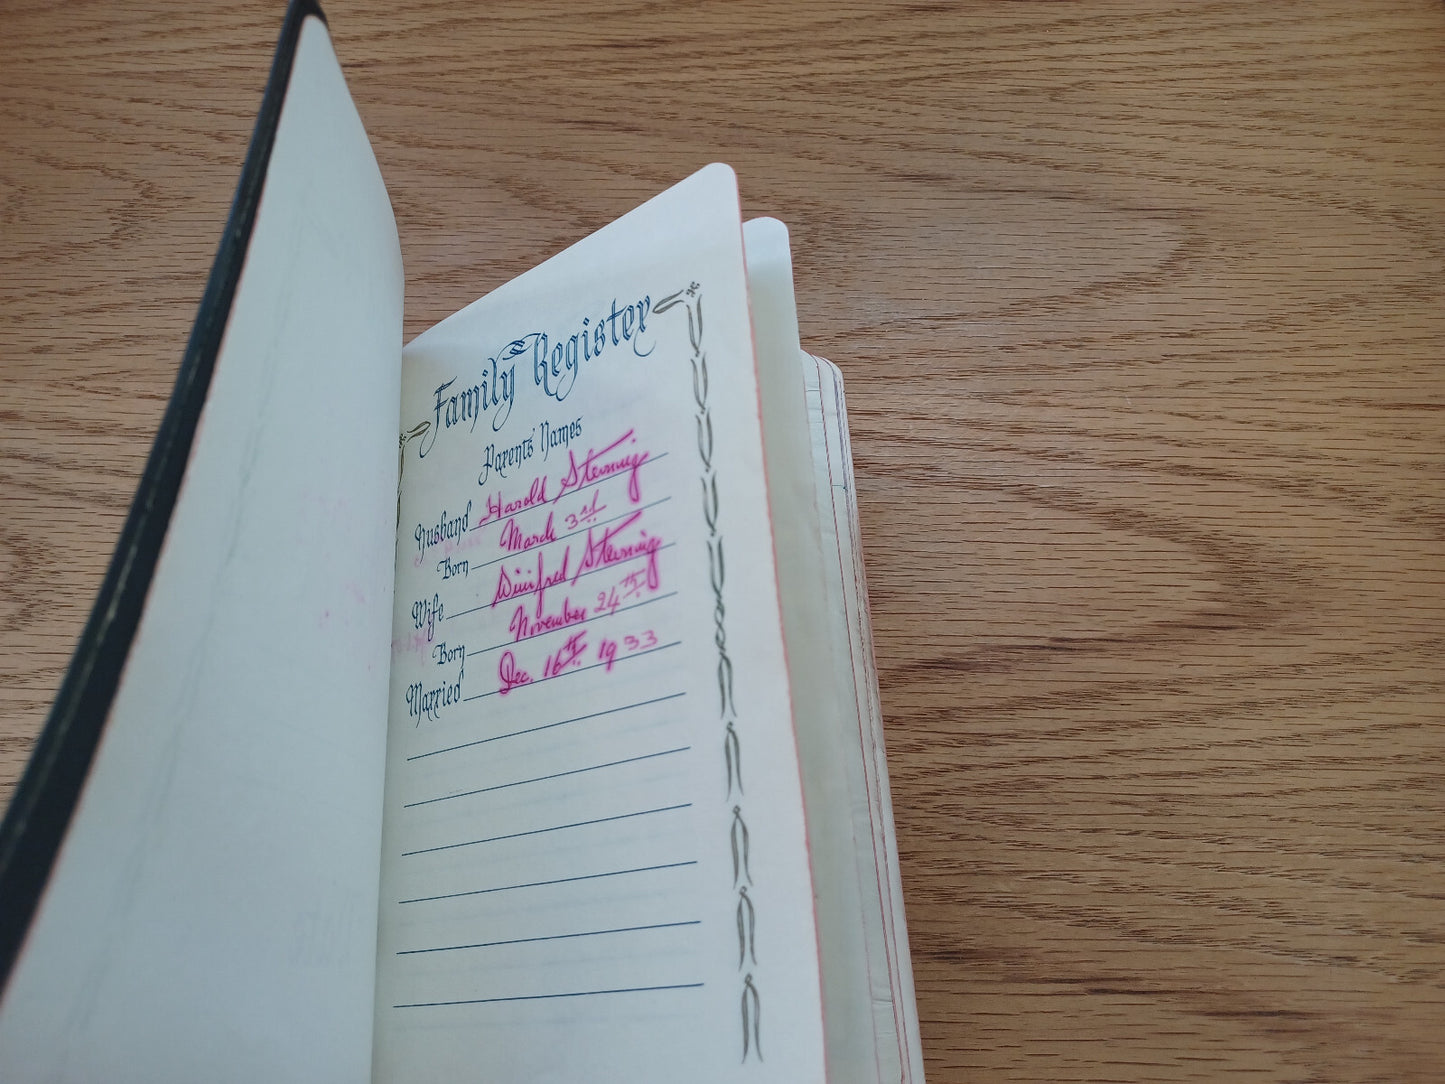 Family Register
Parents' Names
Husband Harold Stenning
Born March 3rd
Wife Winifred Stenning
Born November 24th
Married Dec. 16th 1933